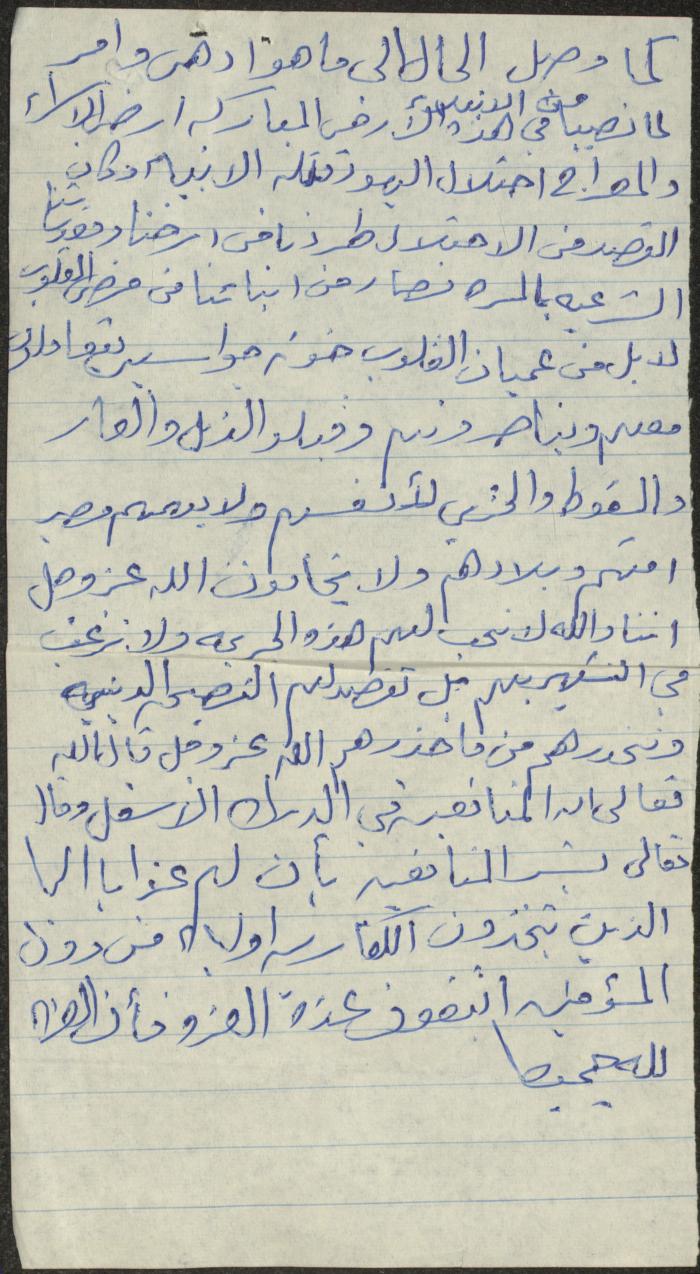 كما وصل الحال الى ما هو ادهى وامر
لما نصيبا في هذه الأرض المباركه ارض الاسراء
والمعراج احتلال اليهود قتله الانبياء وكان
القصد من الاحتلال طردنا من ارضنا
الشرعيه بالمره فصار من ابنائنا من مرضى القلوب
لا بل من عميان القلوب خونه جواسيس
معهم ويناصرونهم وقبلو الذل والعار
والسقوط والخزي لأنفسهم ولا يهمهم مصير
امتهم وبلادهم ولا يخافون الله عز وجل
اننا والله لا نحب لهم هذه الجريمه ولا نرغب
في التشهير بهم بل نقصد لهم النصيحه الدينيه
ونحذرهم من ما حذرهم الله عز وجل قال الله
تعالى ان المنافقين في الدرك الاسفل وقال
تعالى بشر المنافقين بأن لهم عذابا اليما
الذين يتخذون الكافرين اولياء من دون
المؤمنين ايبتغون عندهم العزه فأن العزه
لله جميعا